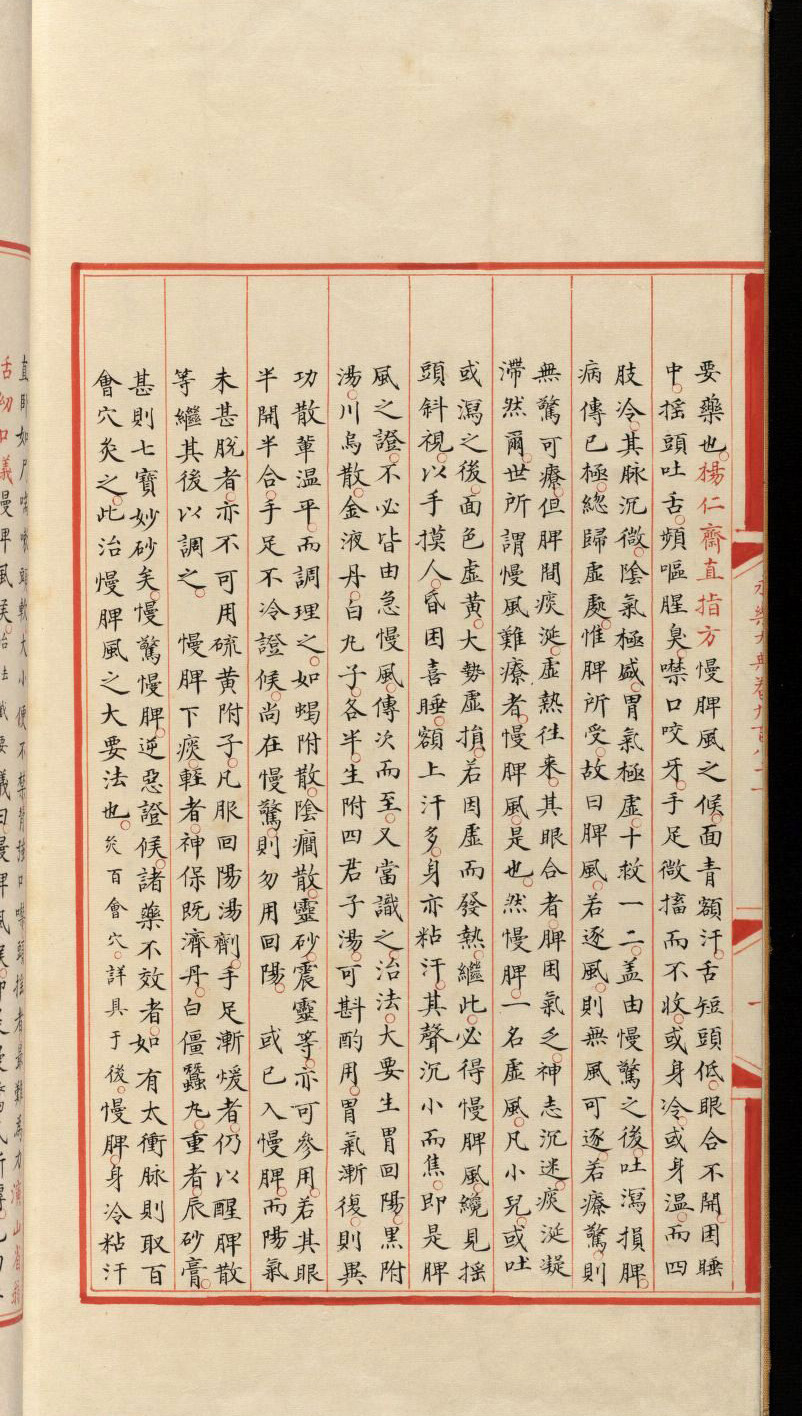 永樂大典卷九百八十
要藥也。楊仁齋直指方慢脾風之候。面青額汗。舌短頭低。眼合不開。困睡
中。搖頭吐舌。頻嘔腥臭。噤口咬牙。手足微搐而不收。或身冷。或身溫。而四
肢冷。其脉沉微。陰氣極盛。胃氣極虛。十救一二。盖由慢驚之後。吐瀉損脾。
病傳已極。緫歸虛處。惟脾所受。故曰脾風。若逐風。則無風可逐。若療驚。則
無驚可療。但脾間痰涎。虛熱往來。其眼合者。脾困氣乏。神志沉迷。痰涎凝
滯然爾。世所謂慢風難療者。慢脾風。是也。然慢脾。一名虛風。凡小兒。或吐
或瀉之後。面色虛黃。大勢虛損。若因虛而發熱。繼此。必得慢脾風。纔見搖
頭斜視。以手摸人。昏困喜睡。額上汗多。身亦粘汗。其聲沉小而焦。即是脾
風之證。不必皆由急慢風。傳次而至。又當識之。治法。大要生胃回陽。黑附
湯。川烏散。金液丹。白丸子。各半。生附四君子湯。可斟酌用。胃氣漸復。則異
功散軰溫平。而調理之。如蝎附散。陰癎散。靈砂。震靈等。亦可參用。若其眼
半開半合。手足不冷。證候。尚在慢驚。則勿用回陽。 或已入慢脾。而陽氣
未甚脫者。亦不可用硫黃附子。凡服回陽湯劑。手足漸煖者。仍以醒脾散
等繼其後以調之。 慢脾下痰。輕者。神保既濟丹。白僵蠶丸。重者。辰砂膏。
甚則七寶妙砂矣。慢驚慢脾。逆惡證候。諸藥不效者。如有太衝脉則取百
會穴灸之。此治慢脾風之大要法也。灸百會穴。詳具于後。慢脾。身冷粘汗